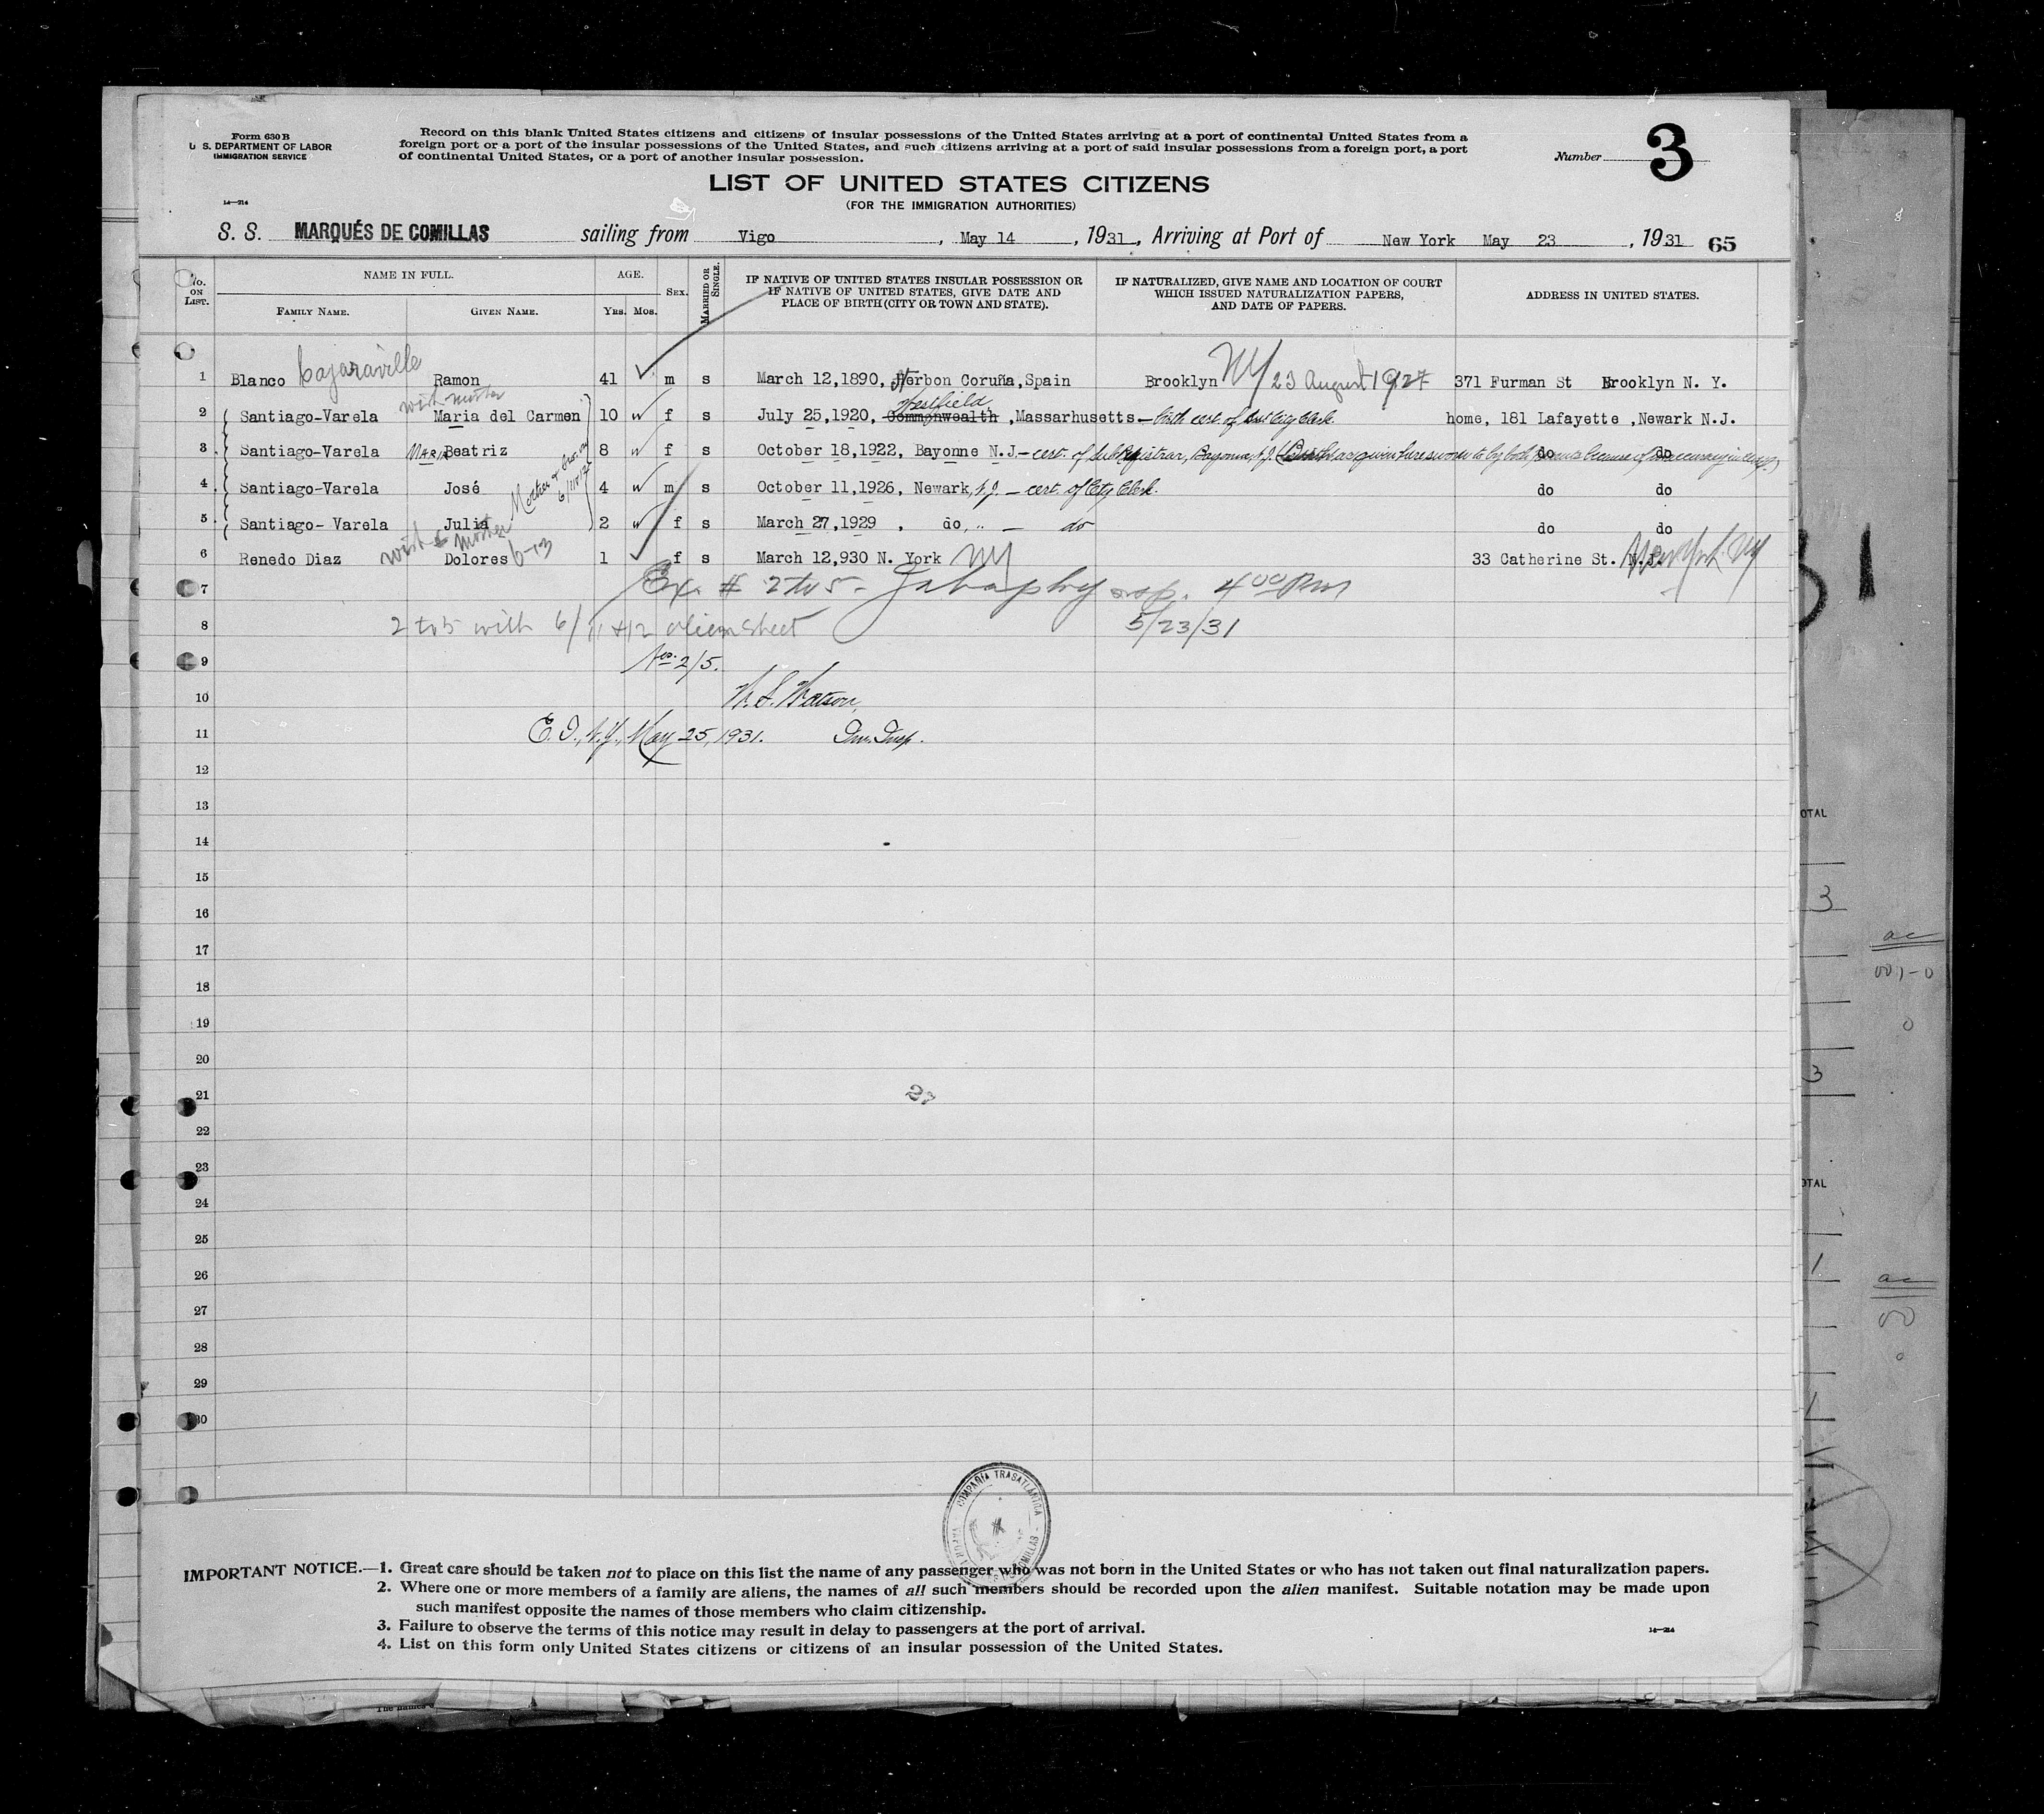 Form 630 B
U. S. DEPARTMENT OF LABOR
IMMIGRATION SERVICE
Record on this blank United States citizens and citizens of insular possessions of the United States arriving at a port of continental United States from a
foreign port or a port of the insular possessions of the United States, and such citizens arriving at a port of said insular possessions from a foreign port, a port
of continental United States, or a port of another insular possession.
Number 3
LIST OF UNITED STATES CITIZENS
(FOR THE IMMIGRATION AUTHORITIES)
14—214
S. S. MARQUÉS DE COMILLAS sailing from Vigo, May 14, 1931, Arriving at Port of New York May 23, 1931 65
No. ON LIST.
NAME IN FULL.
FAMILY NAME. GIVEN NAME.
AGE.
YRS. MOS.
SEX.
MARRIED OR SINGLE.
IF NATIVE OF UNITED STATES INSULAR POSSESSION OR
IF NATIVE OF UNITED STATES, GIVE DATE AND
PLACE OF BIRTH (CITY OR TOWN AND STATE).
IF NATURALIZED, GIVE NAME AND LOCATION OF COURT
WHICH ISSUED NATURALIZATION PAPERS,
AND DATE OF PAPERS.
ADDRESS IN UNITED STATES.
1 Blanco Cajaraville Ramon 41 m s March 12,1890, Herbon Coruña,Spain Brooklyn NY 23 August 1927 371 Furman St Brooklyn N. Y.
with mother
Westfield
2 Santiago-Varela Maria del Carmen 10 f s July 25,1920, Commonwealth ,Massarhusetts — birth cert. of City Clerk. home, 181 Lafayette ,Newark N.J.
3 Santiago-Varela MARIA Beatriz 8 f s October 18,1922, Bayonne N.J. — cert. of Registrar, Bayonne, N.J. do do
4 Santiago-Varela José 4 m s October 11,1926, Newark, N.J. — cert. of City Clerk. do do
5 Santiago- Varela Julia 2 f s March 27,1929 , do, " — do do do
with mother 6-13
6 Renedo Diaz Dolores 1 f s March 12,930 N. York NY 33 Catherine St. N.J. New York NY
7 Ex. # 2 to 5 - insp. 4 00 PM
8 2 to 5 with 6/11 & 12 alien sheet 5/23/31
9 Nos. 2/5.
10 W. S. Watson,
11 E. I., N.Y., May 25, 1931. Im. Insp.
12
13
14
15
16
17
18
19
20
21
27
22
23
24
25
26
27
28
29
30
COMPAÑIA TRASATLANTICA
IMPORTANT NOTICE.—1. Great care should be taken not to place on this list the name of any passenger who was not born in the United States or who has not taken out final naturalization papers.
2. Where one or more members of a family are aliens, the names of all such members should be recorded upon the alien manifest. Suitable notation may be made upon
such manifest opposite the names of those members who claim citizenship.
3. Failure to observe the terms of this notice may result in delay to passengers at the port of arrival.
4. List on this form only United States citizens or citizens of an insular possession of the United States.
14—214